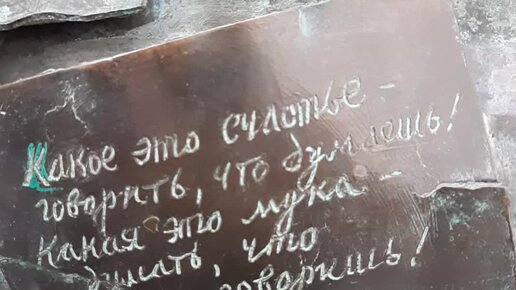 Какое это счастье -
говорить, что думаешь!
Какая это мука -
думать, что
говоришь!